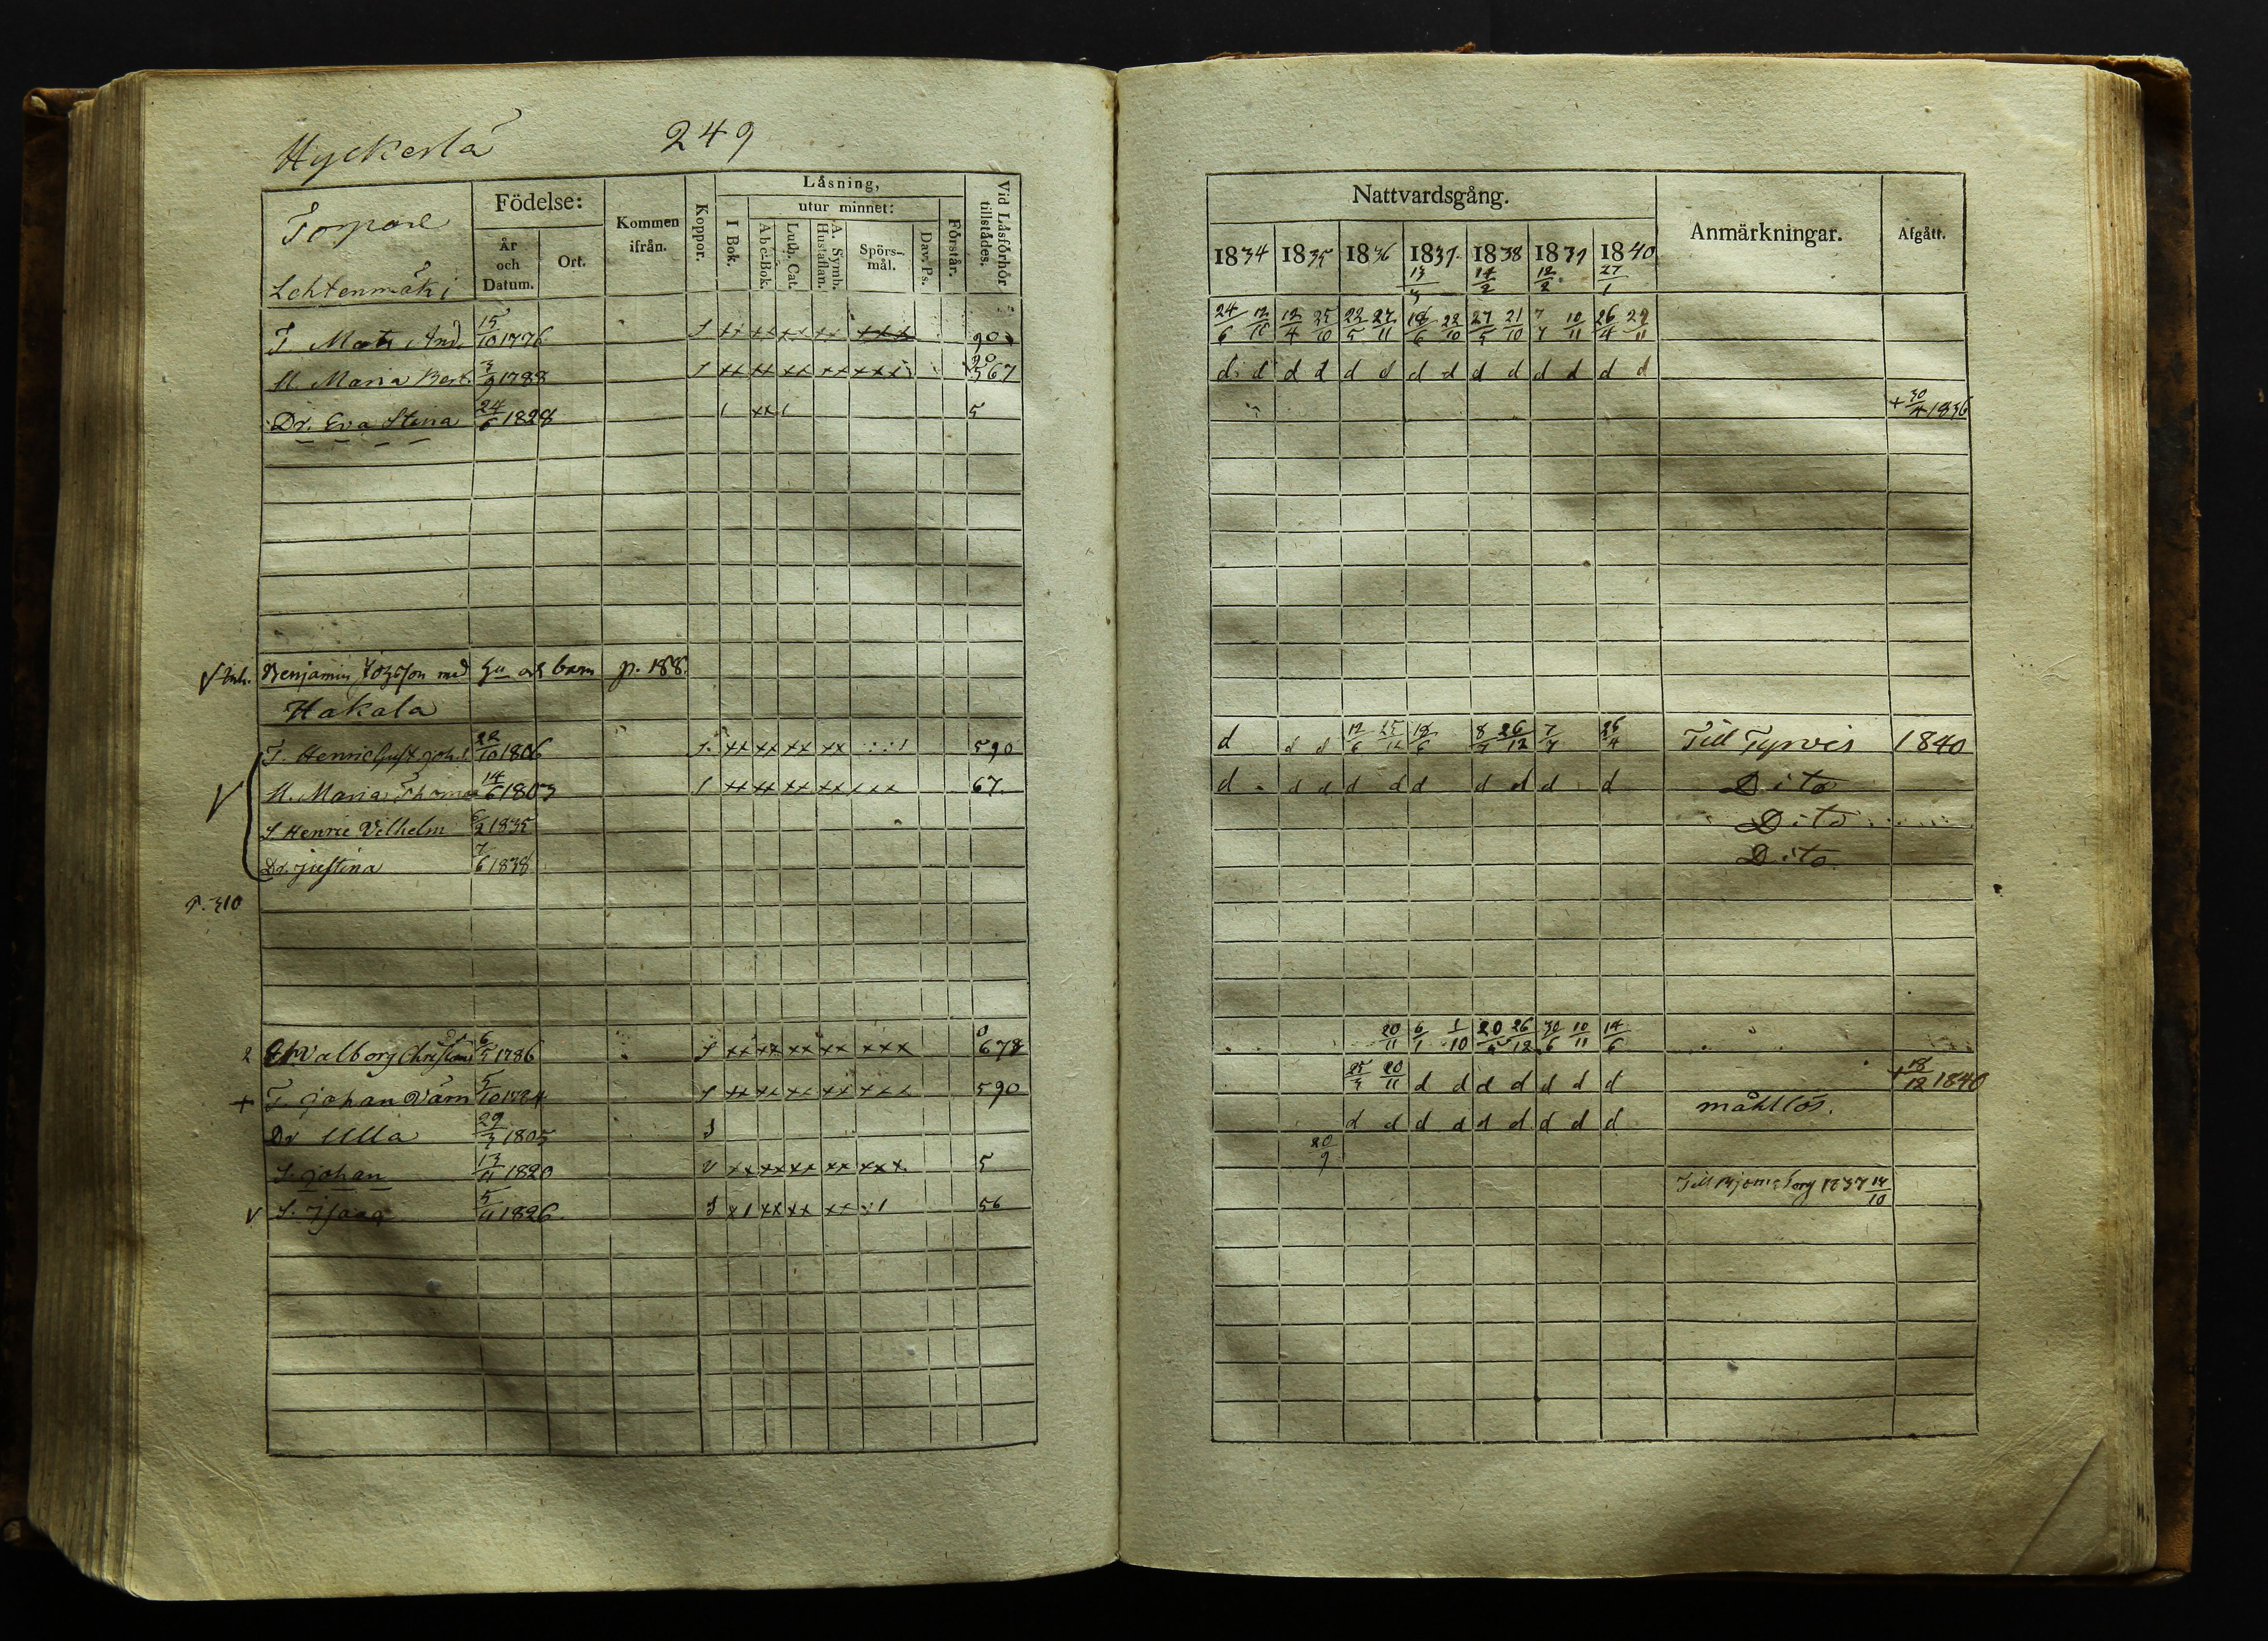 Hyckerlä 249
Torpare
Lehtenmäki
Födelse:
År och Datum.
Ort.
Kommen ifrån.
Koppor.
Läsning,
I Bok.
utur minnet:
Abc-Bok.
Luth. Cat.
A. Symb. Hustaflan.
Spörs-mål.
Dav. Ps.
Förstår.
Vid Läsförhör tillstädes.
T. Mats And. 15/10 1776 S xx xx xx xx xxx 90
M. Maria Bert. 3/9 1788 S xx xx xx xx xxx 567
Dr. Eva Stina 24/6 1828 1 xx 1 5
Benjamin med barn p. 188.
Hakala
T. Henric Gust. Joh. 22/10 1806 S. xx xx xx xx 590
M. Maria Thomas 14/6 1803 S xx xx xx xx xxx 67.
S Henric Vilhelm 1835
Dr. Justina 7/6 1838
p. 310
2 Valborg Christ. 6/5 1786 S xx xx xx xx xxx 678
+ T. Johan Värn 5/10 1784 S xx xx xx xx xxx 590
Dr Ulla 29/3 1805 S
S. Johan 13/11 1820 v xx xx xx xx xxx 5
v S. Isaac 5/11 1826 S x1 xx xx xx 1 56
Nattvardsgång.
Anmärkningar.
Afgått.
1834 1835 1836 1837 1838 1839 1840
14/2 12/2 27/1
24/6 12/4 25/10 22/5 27/11 18/6 22/10 27/5 21/10 7/7 10/11 26/4 29/11
d d d d d d d d d d d d d d
+ 30/4 1836
d d d 12/6 18/6 26/12 7/7 26/4 Till Tyrvis 1840
d d d d d d d d d d Dito
Dito
Dito
20/11 6/1 1/10 20 26/12 30/6 10/11 14/6
25/3 20/11 d d d d d d d + 18/12 1840
d d d d d d d d d mållös.
20/9
Till Björneborg 1837 14/10